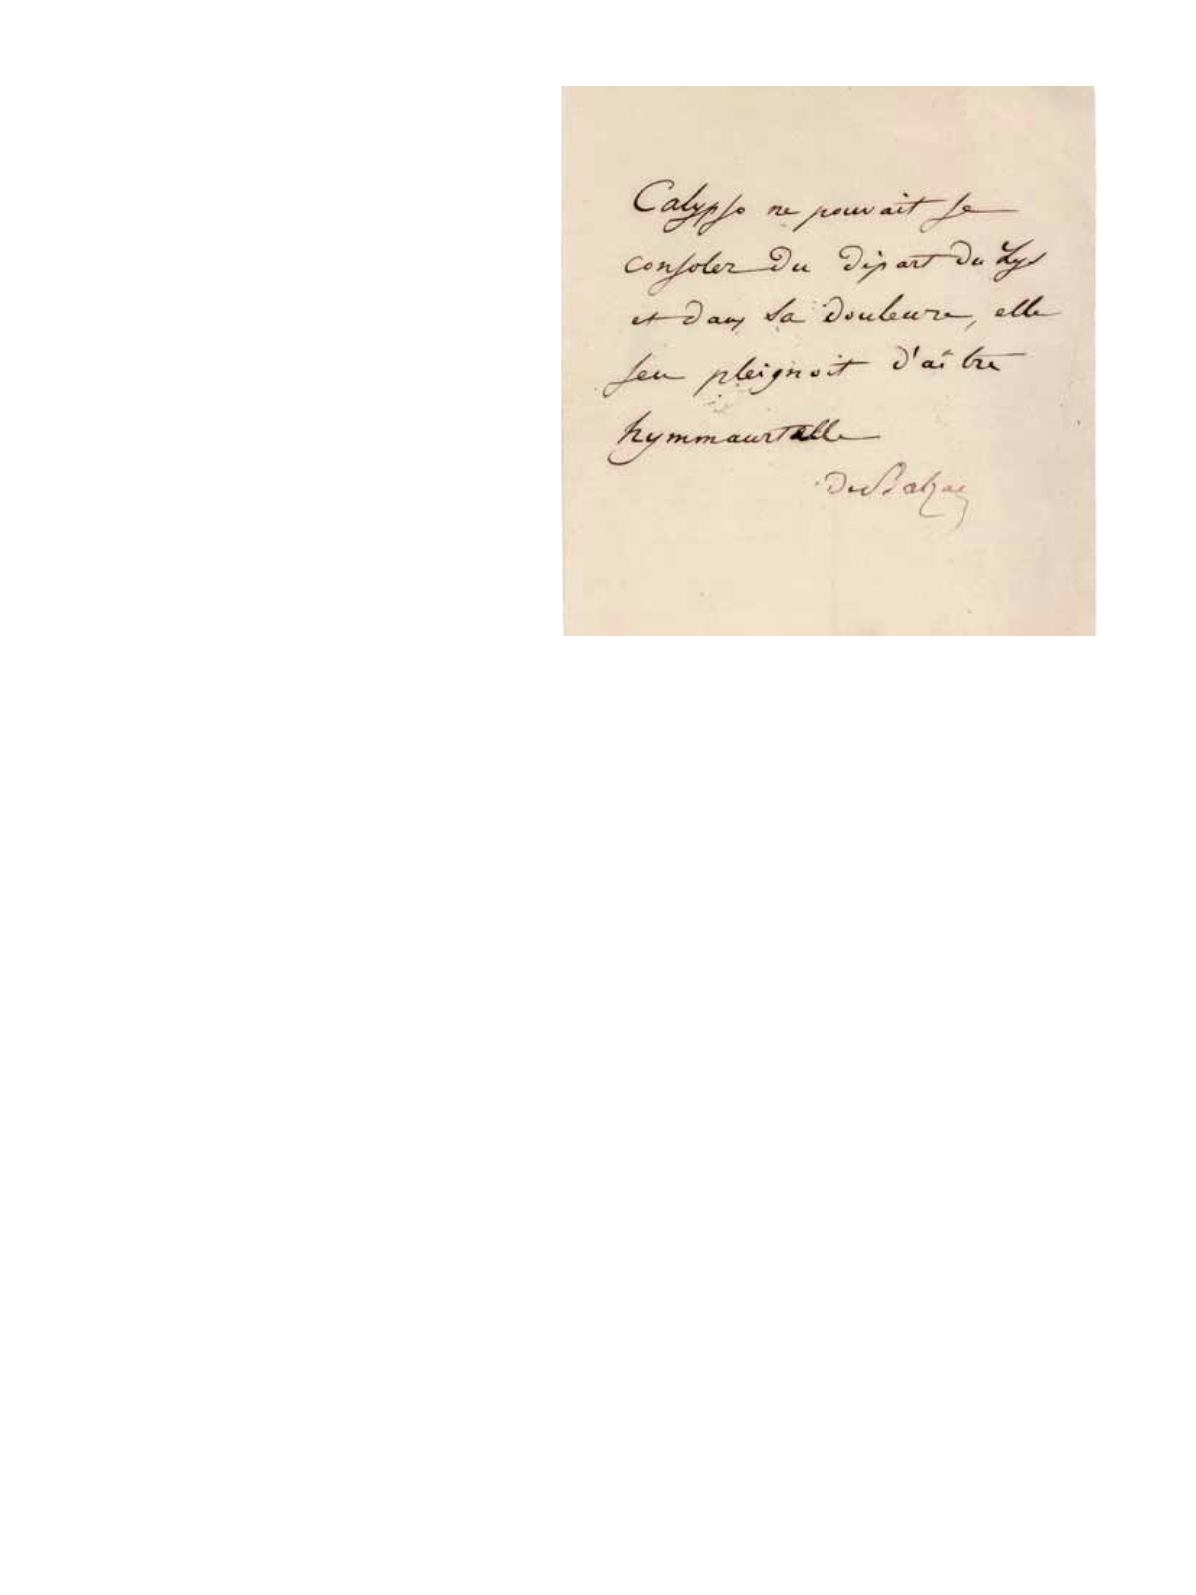 Calypso ne pouvait se
consoler du départ du Lys
et dans sa douleure, elle
seu pleignoit d'aître
hymmaurtalle
de Balzac